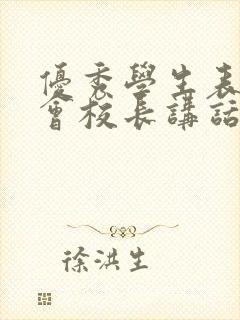 優秀學生表
會校長講話
徐洪生